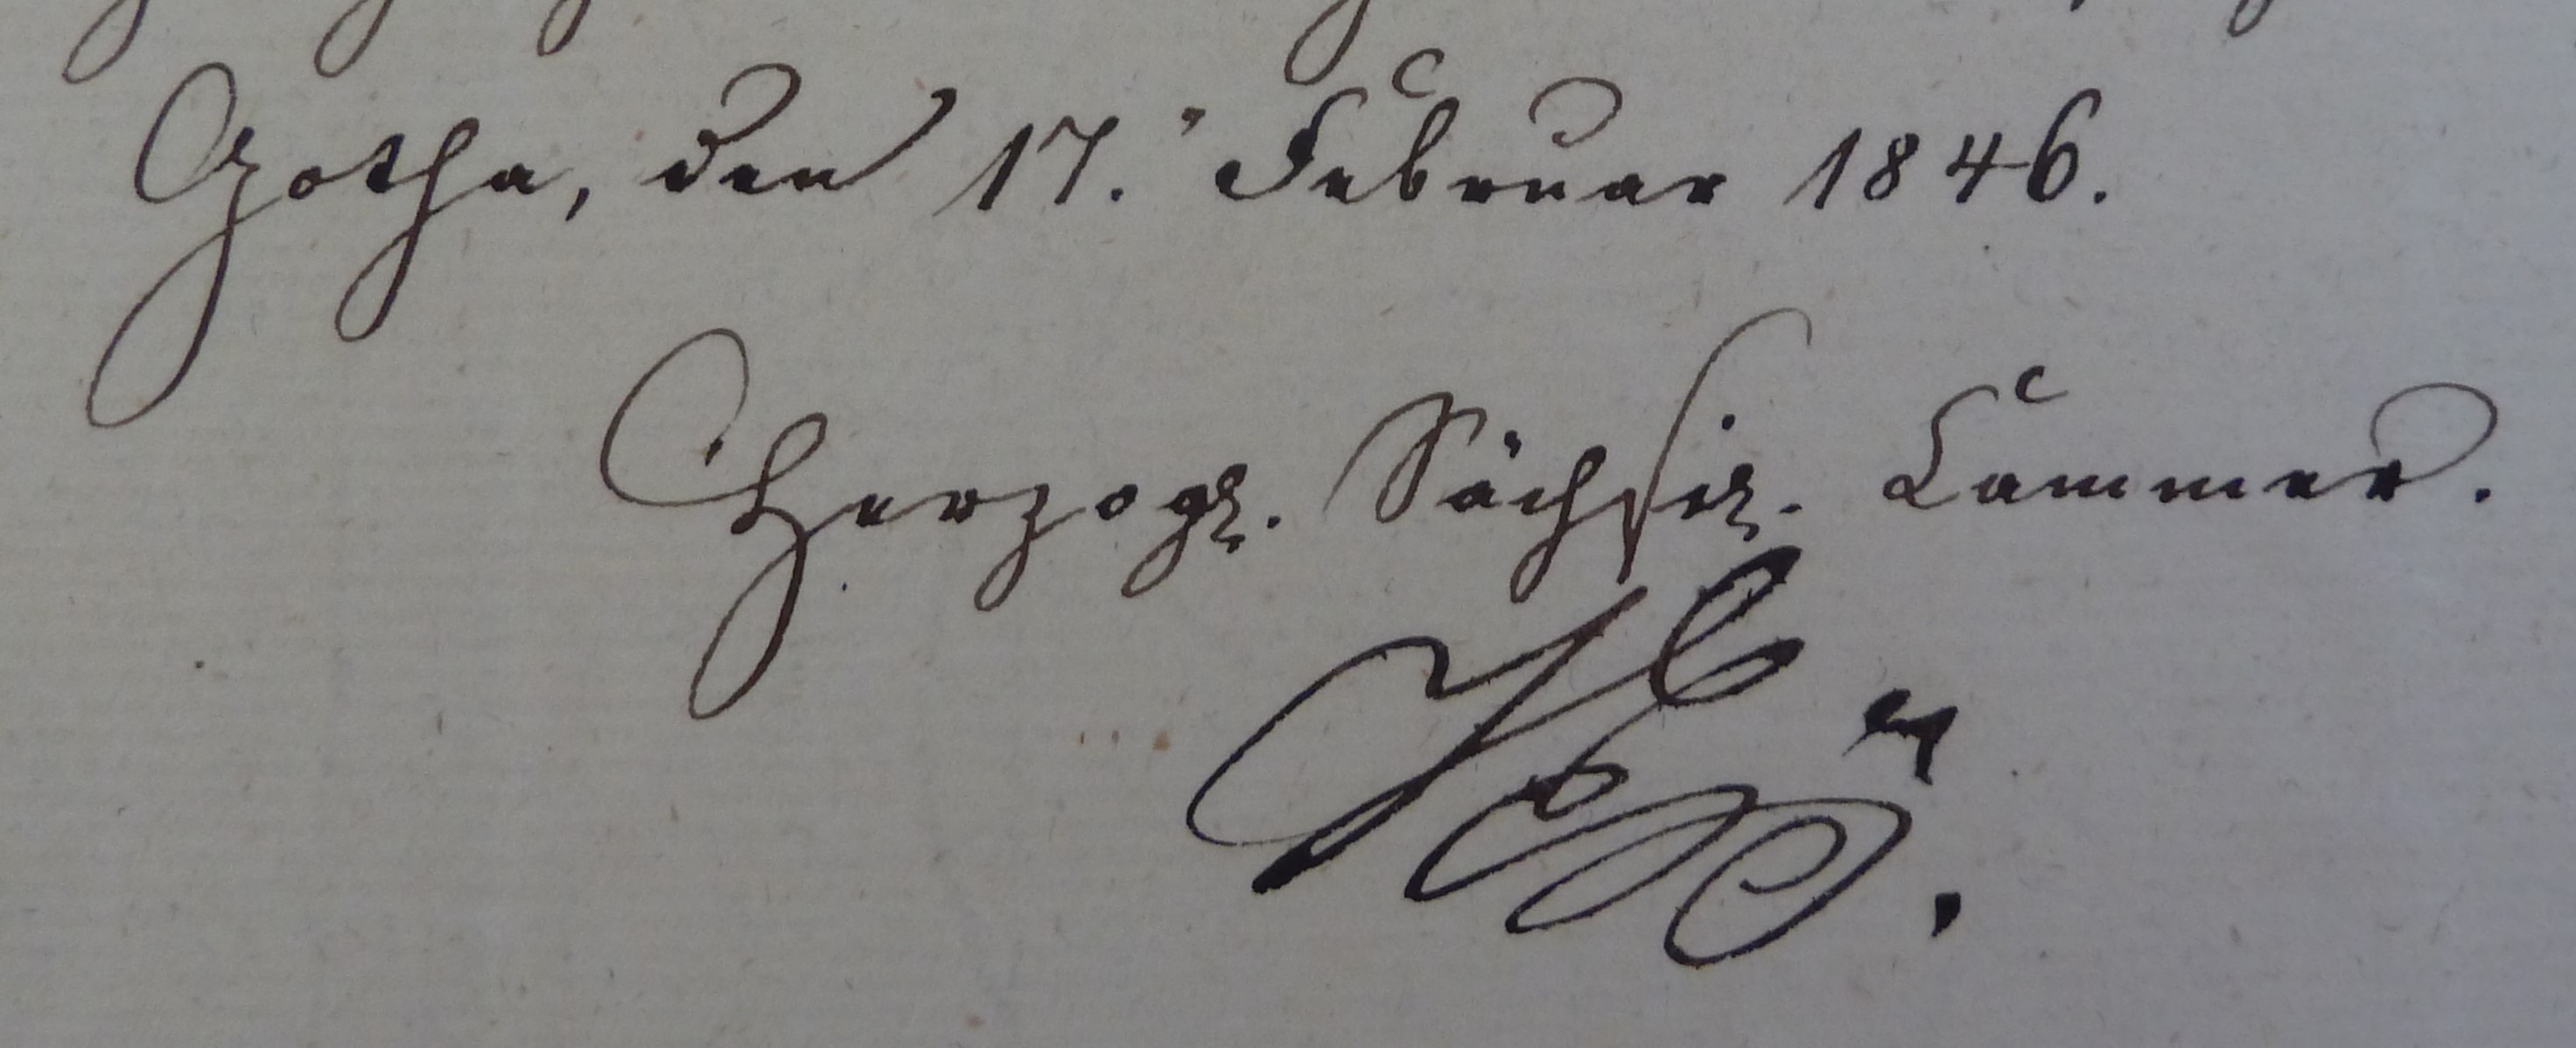 Gotha, den 17. Februar 1846.
Herzogl. Sächsis. Cammer.